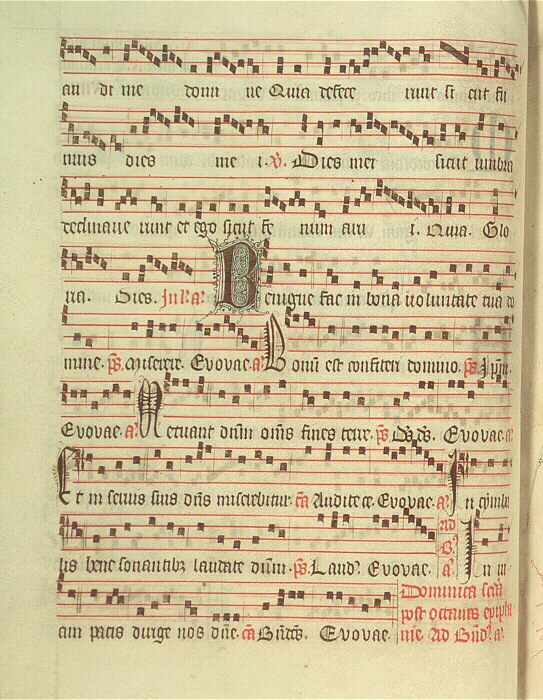 au di me domi ne Quia defece runt si cut fu
mus dies me i. V. Dies mei sicut umbra
declinave runt et ego sicut fe num aru i. Quia. Glo
ria. Dies. In lau. a. Benigne fac in bona voluntate tua do
mine. ps. Miserere. Evovae. a. Bonum est confiteri domino. ps. Ipm.
Evovae. a. Metuant dnm oms fines terre. ps. Ds. ds. Evovae. a.
Et in servis suis dns miserebitur. ca Audite ce. Evovae. a. In cymba
lis bene sonantibus laudate dnm. ps. Laud. Evovae. Ad B. a. In vi
am pacis dirige nos dne. ca Bndcs. Evovae.
Dominica scda
post octavas epipha
nie. Ad Bnd. a.